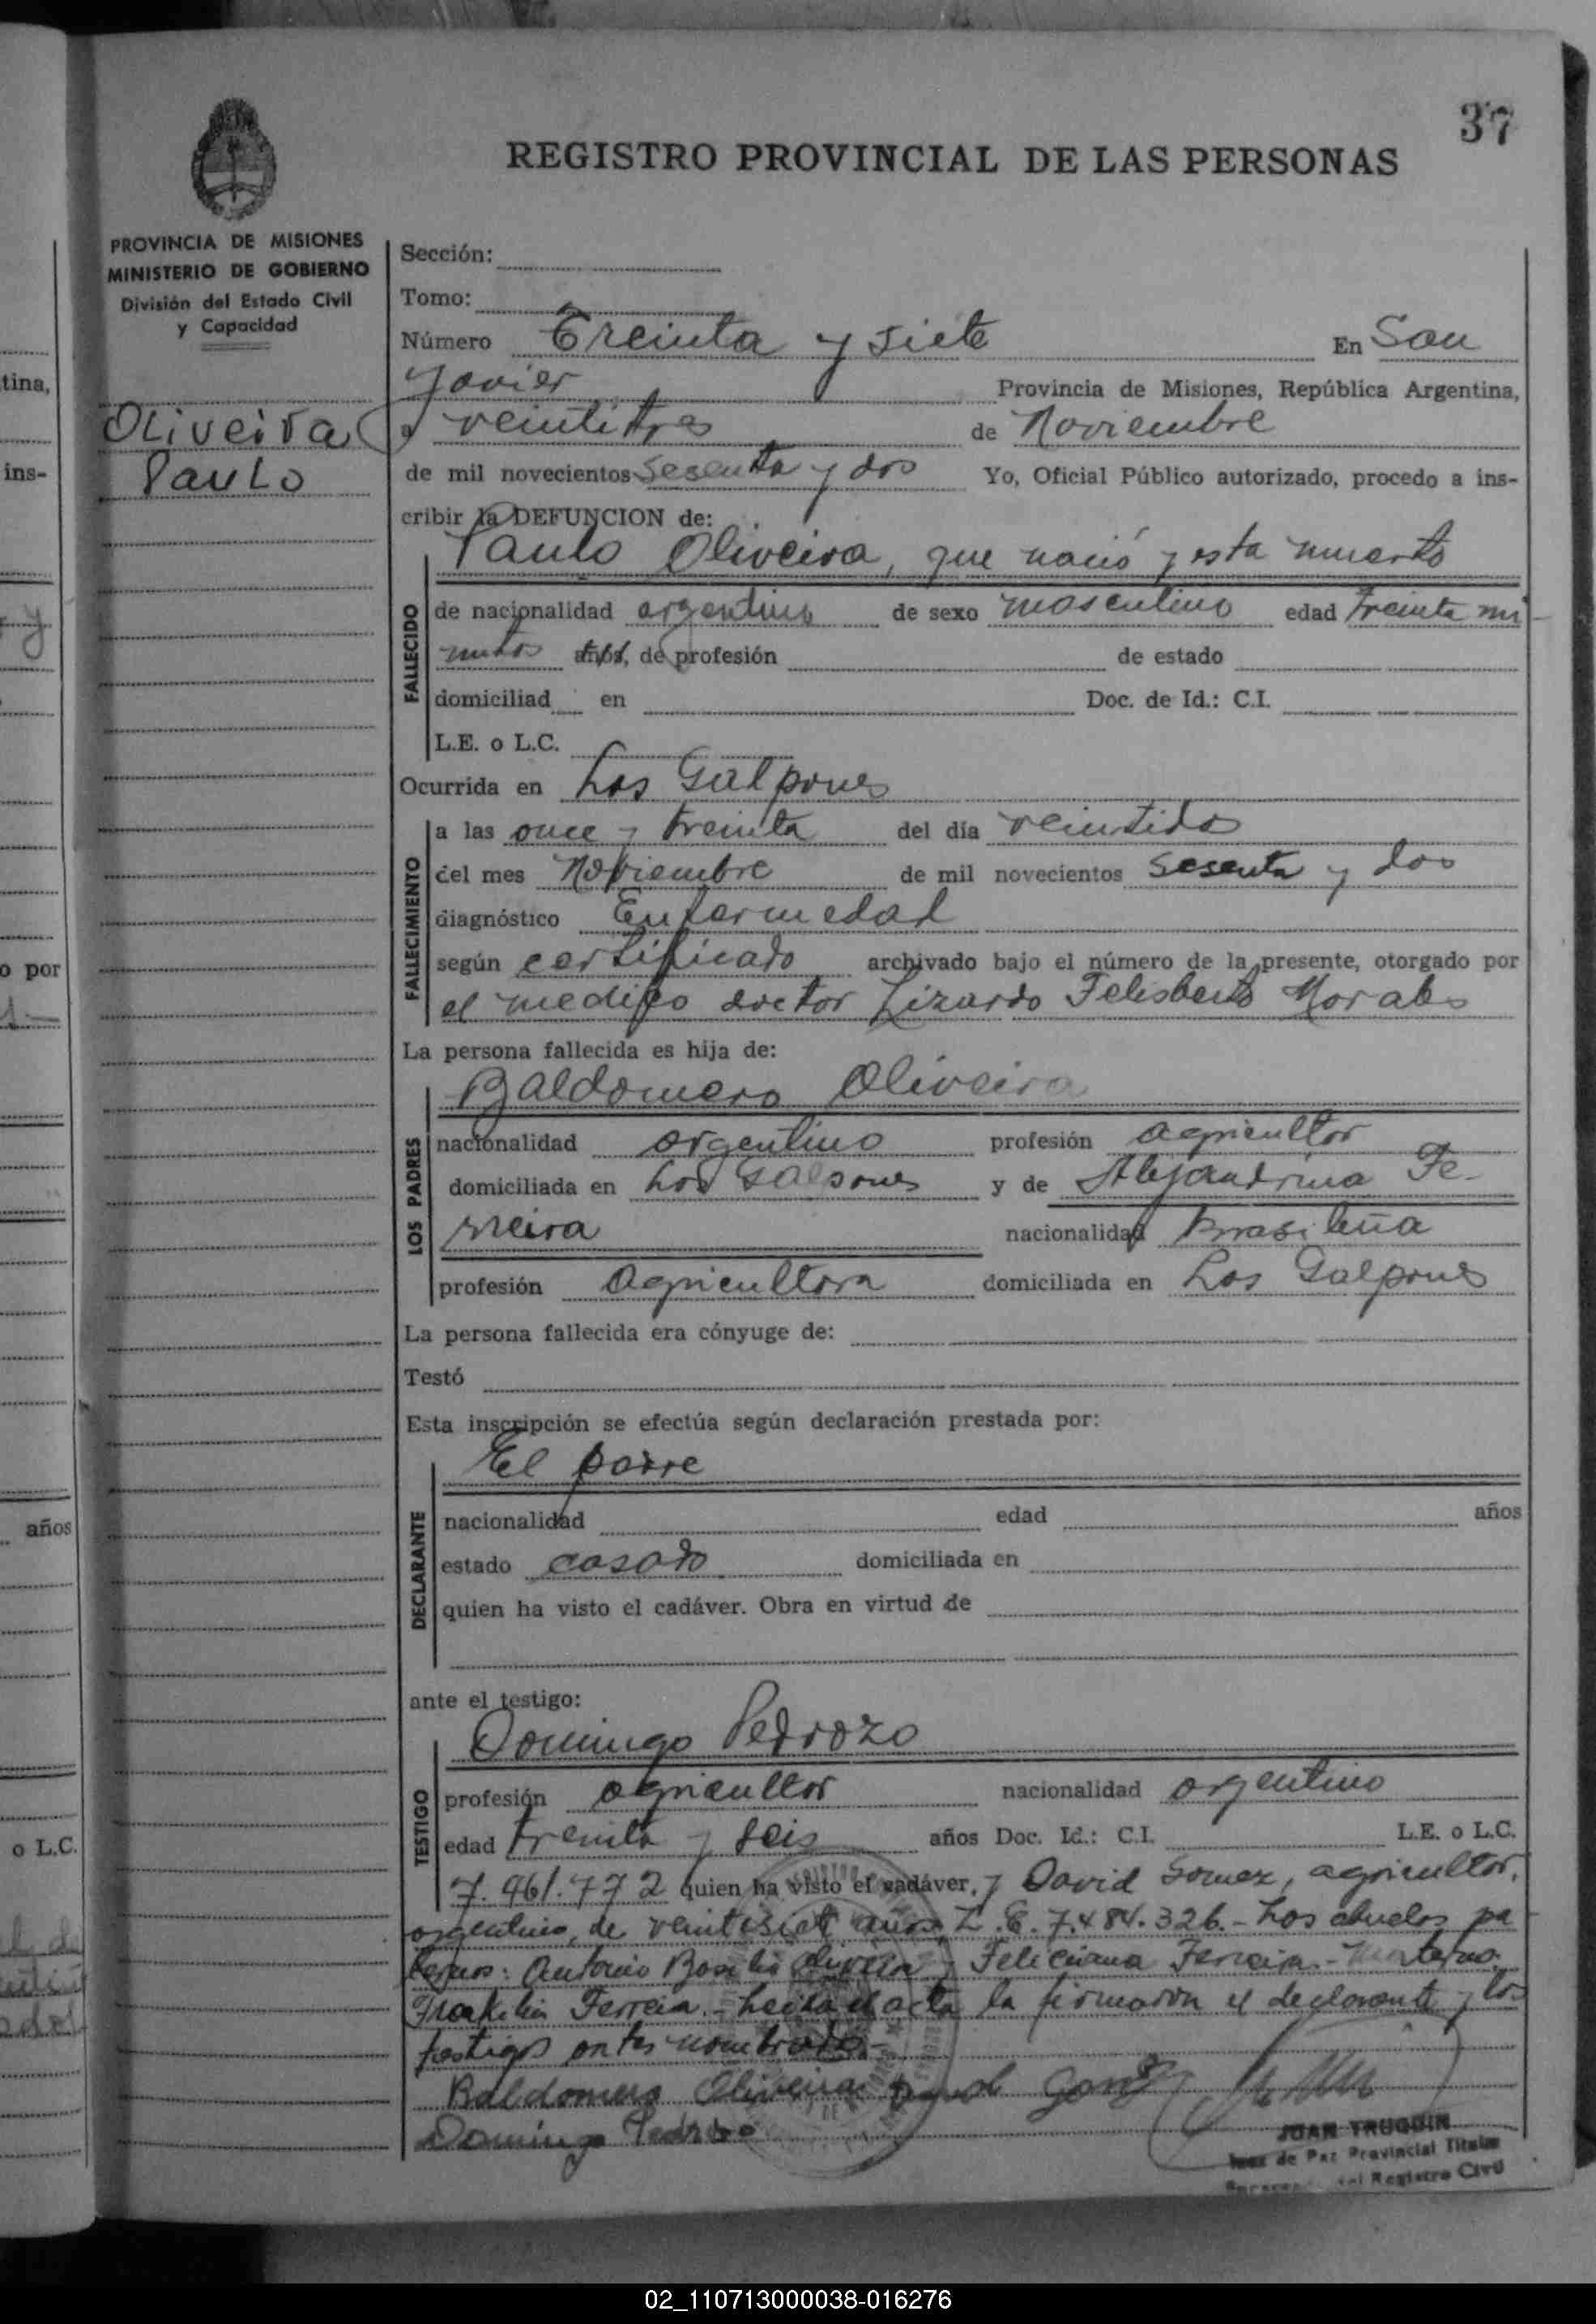 37
REGISTRO PROVINCIAL DE LAS PERSONAS
PROVINCIA DE MISIONES
MINISTERIO DE GOBIERNO
División del Estado Civil
y Capacidad
Oliveira
Paulo
Sección:
Tomo:
Número Treinta y siete En San
Javier Provincia de Misiones, República Argentina,
a veintitres de Noviembre
de mil novecientos sesenta y dos Yo, Oficial Público autorizado, procedo a ins-
cribir la DEFUNCION de:
Paulo Oliveira, que nació y esta muerto
FALLECIDO
de nacionalidad argentino de sexo masculino edad treinta mi
nutos años, de profesión de estado
domiciliad en Doc. de Id.: C.I.
L.E. o L.C.
Ocurrida en Los Galpones
FALLECIMIENTO
a las once y treinta del día veintidos
del mes Noviembre de mil novecientos sesenta y dos
diagnóstico Enfermedad
según certificado archivado bajo el número de la presente, otorgado por
el medico doctor Lizardo Felisberto Morales
La persona fallecida es hija de:
Baldomero Oliveira
LOS PADRES
nacionalidad argentino profesión agricultor
domiciliada en Los Galpones y de Alejandrina Fe-
rreira nacionalidad brasileña
profesión Agricultora domiciliada en Los Galpones
La persona fallecida era cónyuge de:
Testó
Esta inscripción se efectúa según declaración prestada por:
El padre
DECLARANTE
nacionalidad edad años
estado casado domiciliada en
quien ha visto el cadáver. Obra en virtud de
ante el testigo:
Domingo Pedrozo
TESTIGO
profesión agricultor nacionalidad argentino
edad treinta y seis años Doc. Id.: C.I. L.E. o L.C.
7.461.772 quien ha visto el cadáver, y David Gomez, agricultor,
argentino, de veintisiete años L.E. 7.484.326.- Los abuelos pa
ternos: Antonio Basilio Oliveira y Feliciana Ferreira.- Materno:
Ferreira.- Leida el acta la firmaron el declarante y los
testigos antes nombrados.-
Baldomero Oliveira
Domingo Pedrozo
JUAN TRUGUIN
Juez de Paz Provincial Titular
del Registro Civil
tina,
ins-
y
o por
años
o L.C.
02_110713000038-016276